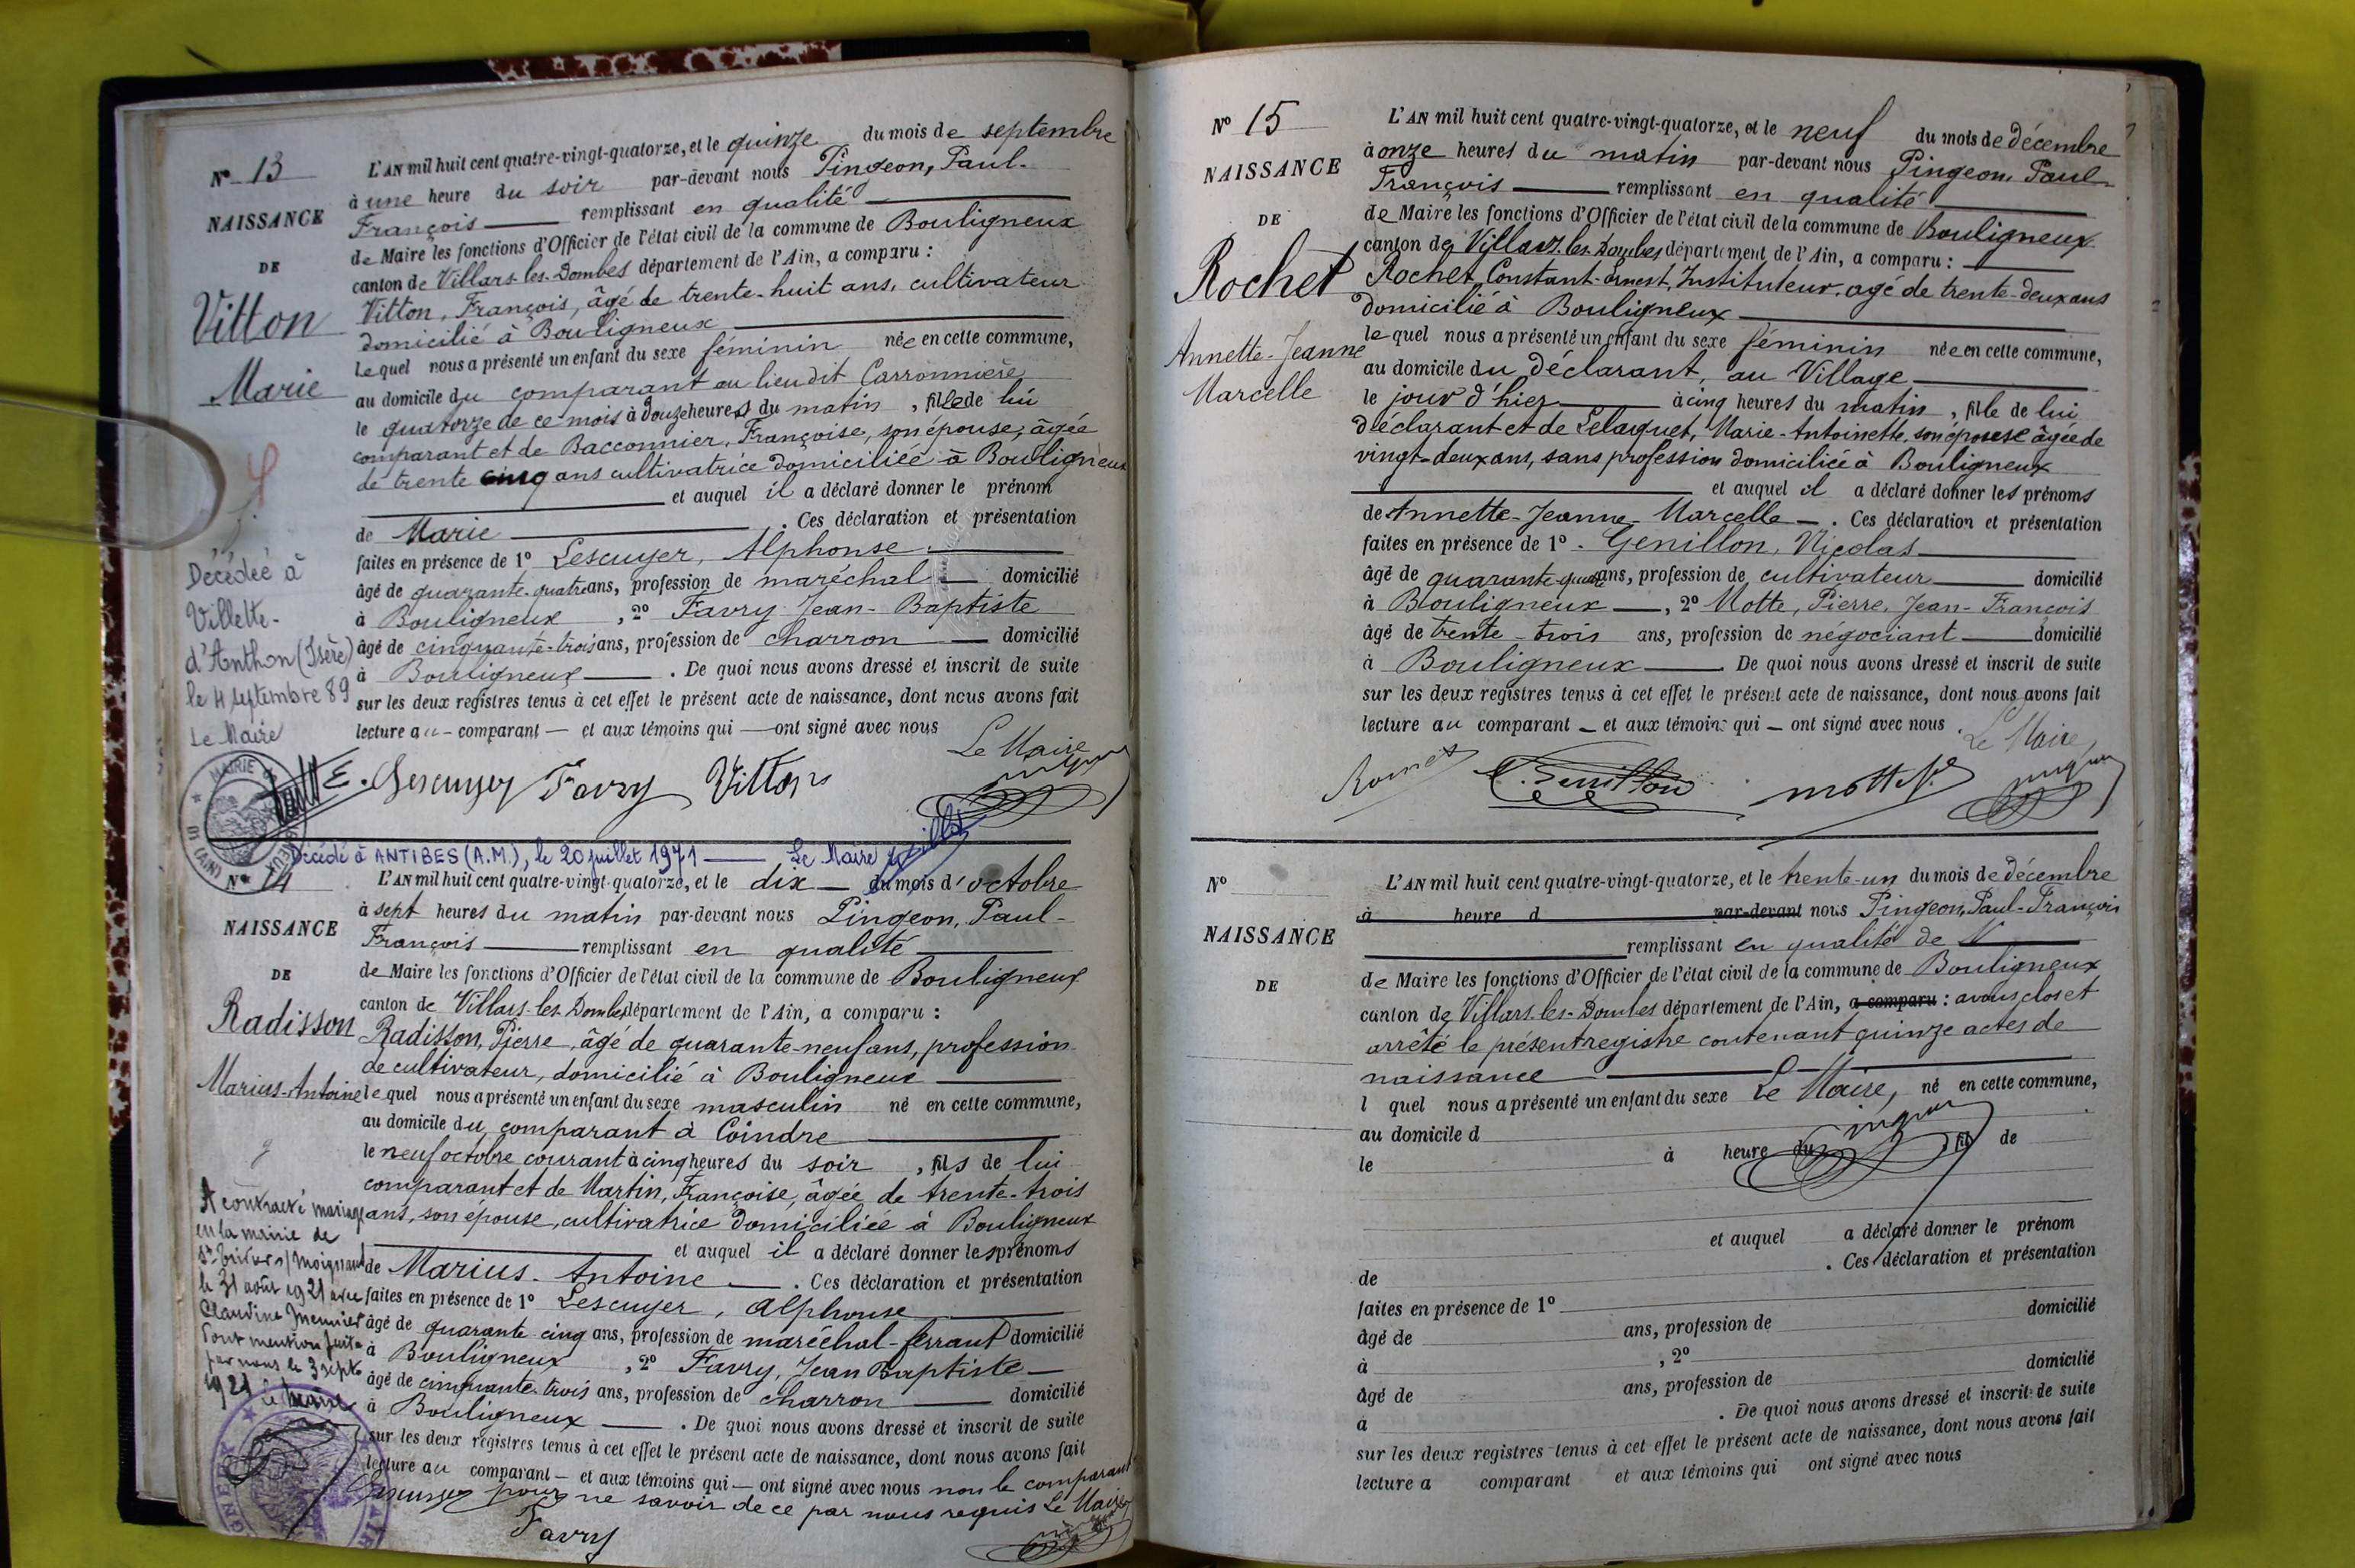 N° 13
NAISSANCE
DE
Vitton
Marie
L'AN mil huit cent quatre-vingt-quatorze, et le quinze du mois de septembre
à une heure du soir par-devant nous Pingeon, Paul-
François remplissant en qualité
de Maire les fonctions d'Officier de l'état civil de la commune de Bouligneux
canton de Villars-les-Dombes département de l'Ain, a comparu :
Vitton, François, âgé de trente-huit ans, cultivateur
domicilié à Bouligneux
lequel nous a présenté un enfant du sexe féminin née en cette commune,
au domicile du comparant au lieu dit Carronnière
le quatorze de ce mois à douze heures du matin, fille de lui
comparant et de Bacconnier, Françoise, son épouse, âgée
de trente cinq ans cultivatrice domiciliée à Bouligneux
et auquel il a déclaré donner le prénom
de Marie . Ces déclaration et présentation
faites en présence de 1° Lescuyer, Alphonse
âgé de quarante-quatre ans, profession de maréchal domicilié
à Bouligneux , 2° Favry Jean-Baptiste
âgé de cinquante-trois ans, profession de charron domicilié
à Bouligneux . De quoi nous avons dressé et inscrit de suite
sur les deux registres tenus à cet effet le présent acte de naissance, dont nous avons fait
lecture au comparant et aux témoins qui ont signé avec nous
Le Maire
Lescuyer Favry Vitton
Décédée à
Villette-
d'Anthon (Isère)
le 4 septembre 89
Le Maire
Décédé à ANTIBES (A.M.), le 20 juillet 1971 Le Maire
N° 14
NAISSANCE
DE
Radisson
Marius-Antoine
L'AN mil huit cent quatre-vingt-quatorze, et le dix du mois d'octobre
à sept heures du matin par-devant nous Pingeon, Paul-
François remplissant en qualité
de Maire les fonctions d'Officier de l'état civil de la commune de Bouligneux
canton de Villars-les-Dombes département de l'Ain, a comparu :
Radisson, Pierre, âgé de quarante-neuf ans, profession
de cultivateur, domicilié à Bouligneux
lequel nous a présenté un enfant du sexe masculin né en cette commune,
au domicile du comparant à Coindre
le neuf octobre courant à cinq heures du soir , fils de lui
comparant et de Martin, Françoise, âgée de trente-trois
ans, son épouse, cultivatrice domiciliée à Bouligneux
et auquel il a déclaré donner les prénoms
de Marius-Antoine . Ces déclaration et présentation
faites en présence de 1° Lescuyer, Alphonse
âgé de quarante cinq ans, profession de maréchal-ferrant domicilié
à Bouligneux , 2° Favry, Jean Baptiste
âgé de cinquante trois ans, profession de charron domicilié
à Bouligneux . De quoi nous avons dressé et inscrit de suite
sur les deux registres tenus à cet effet le présent acte de naissance, dont nous avons fait
lecture au comparant et aux témoins qui ont signé avec nous non le comparant
Lescuyer pour ne savoir de ce par nous requis Le Maire
Favry
A contracté mariage
en la mairie de
St Trivier s/ Moignans
le 31 août 1921 avec
Claudine Meunier
Dont mention faite
par nous le 3 sept
1921 le Maire
N° 15
NAISSANCE
DE
Rochet
Annette-Jeanne
Marcelle
L'AN mil huit cent quatre-vingt-quatorze, et le neuf du mois de décembre
à onze heures du matin par-devant nous Pingeon, Paul-
François remplissant en qualité
de Maire les fonctions d'Officier de l'état civil de la commune de Bouligneux
canton de Villars-les-Dombes département de l'Ain, a comparu :
Rochet, Constant-Ernest, Instituteur, âgé de trente-deux ans
domicilié à Bouligneux
lequel nous a présenté un enfant du sexe féminin née en cette commune,
au domicile du déclarant, au Village
le jour d'hier à cinq heures du matin , fille de lui
déclarant et de Lelaquet, Marie-Antoinette, son épouse âgée de
vingt-deux ans, sans profession domiciliée à Bouligneux
et auquel il a déclaré donner les prénoms
de Annette-Jeanne-Marcelle . Ces déclaration et présentation
faites en présence de 1° Genillon, Nicolas
âgé de quarante-quatre ans, profession de cultivateur domicilié
à Bouligneux , 2° Motte, Pierre, Jean-François
âgé de trente-trois ans, profession de négociant domicilié
à Bouligneux . De quoi nous avons dressé et inscrit de suite
sur les deux registres tenus à cet effet le présent acte de naissance, dont nous avons fait
lecture au comparant et aux témoins qui ont signé avec nous
Le Maire,
Rochet Genillon Motte
N°
NAISSANCE
DE
L'AN mil huit cent quatre-vingt-quatorze, et le trente-un du mois de décembre
à heure d par-devant nous Pingeon, Paul-François
remplissant en qualité de
de Maire les fonctions d'Officier de l'état civil de la commune de Bouligneux
canton de Villars-les-Dombes département de l'Ain, a comparu : avons clos et
arrêté le présent registre contenant quinze actes de
naissance
l quel nous a présenté un enfant du sexe Le Maire, né en cette commune,
au domicile d
le à heure du fil de
et auquel a déclaré donner le prénom
de . Ces déclaration et présentation
faites en présence de 1°
âgé de ans, profession de domicilié
à , 2°
âgé de ans, profession de domicilié
à . De quoi nous avons dressé et inscrit de suite
sur les deux registres tenus à cet effet le présent acte de naissance, dont nous avons fait
lecture a comparant et aux témoins qui ont signé avec nous